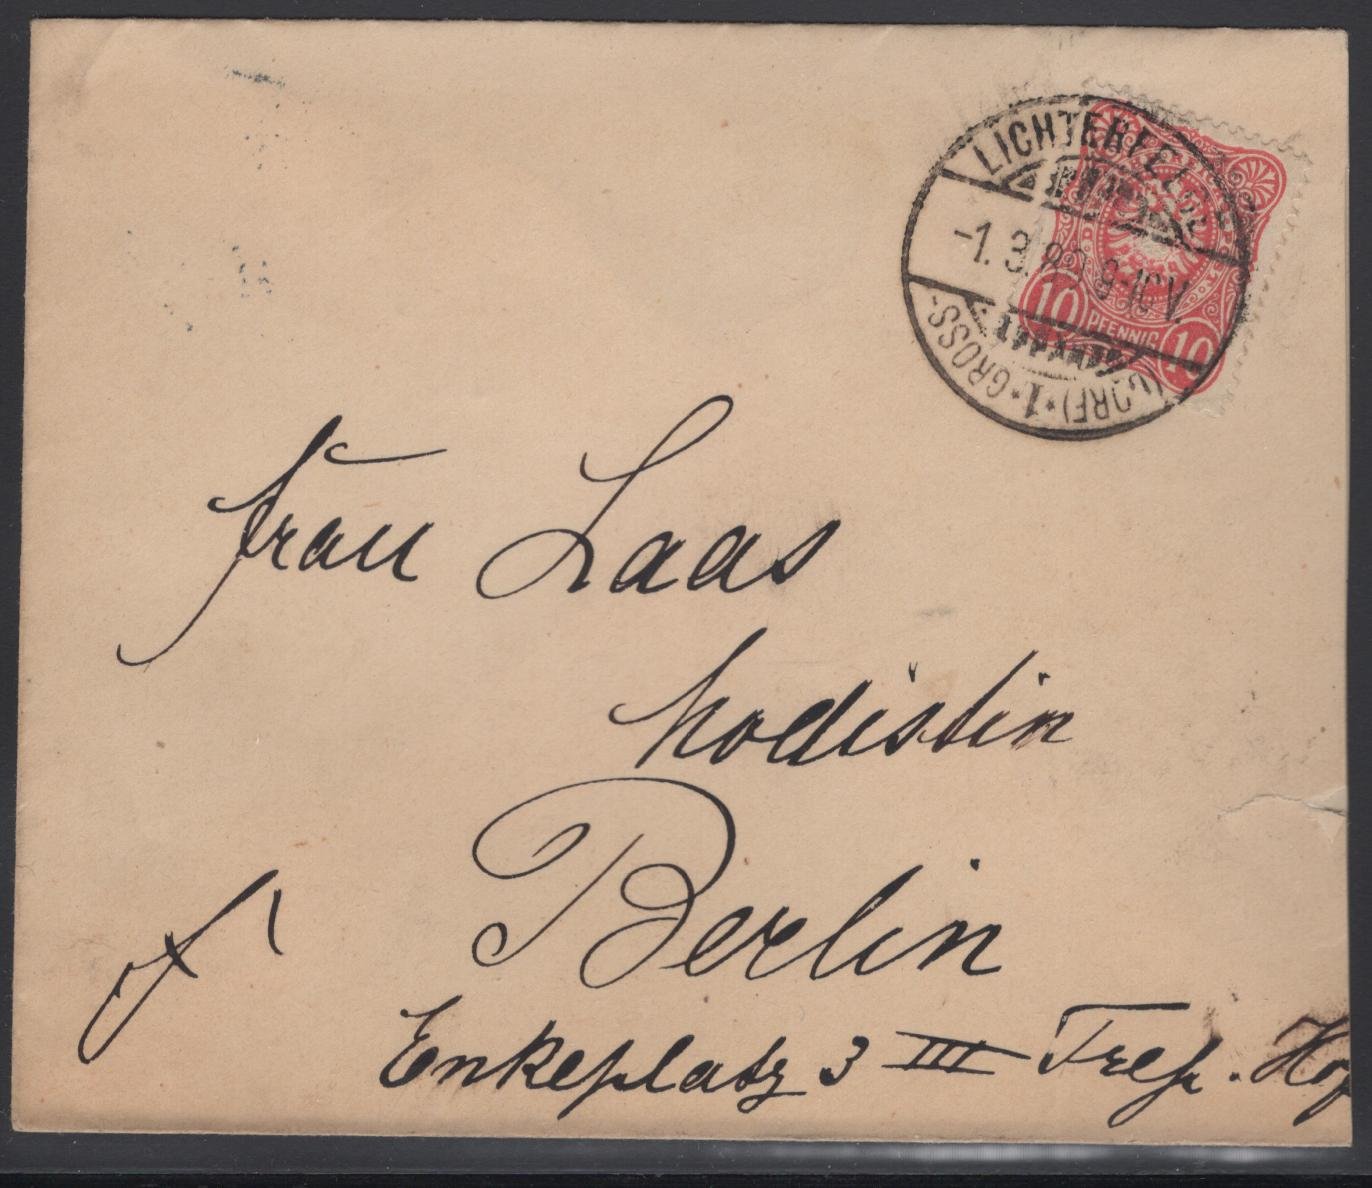 LICHTERFELDE
-1. 3. 89 9-10 V.
(DORF) * 1 * GROSS-
10 PFENNIG 10
Frau Laas
Modistin
Berlin
f'
Enkeplatz 3 III Trep. Hof